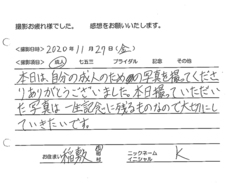 撮影お疲れ様でした。 感想をお願いいたします。
<撮影日時> 2020年 11月 27日 (金)
<撮影項目> 成人 七五三 ブライダル 記念 その他
本日は、自分の成人のための写真を撮ってくださ
りありがとうございました。本日撮っていただい
た写真は一生記念に残るものなので大切にし
ていきたいです。
お住まい 稲敷 ニックネーム イニシャル K